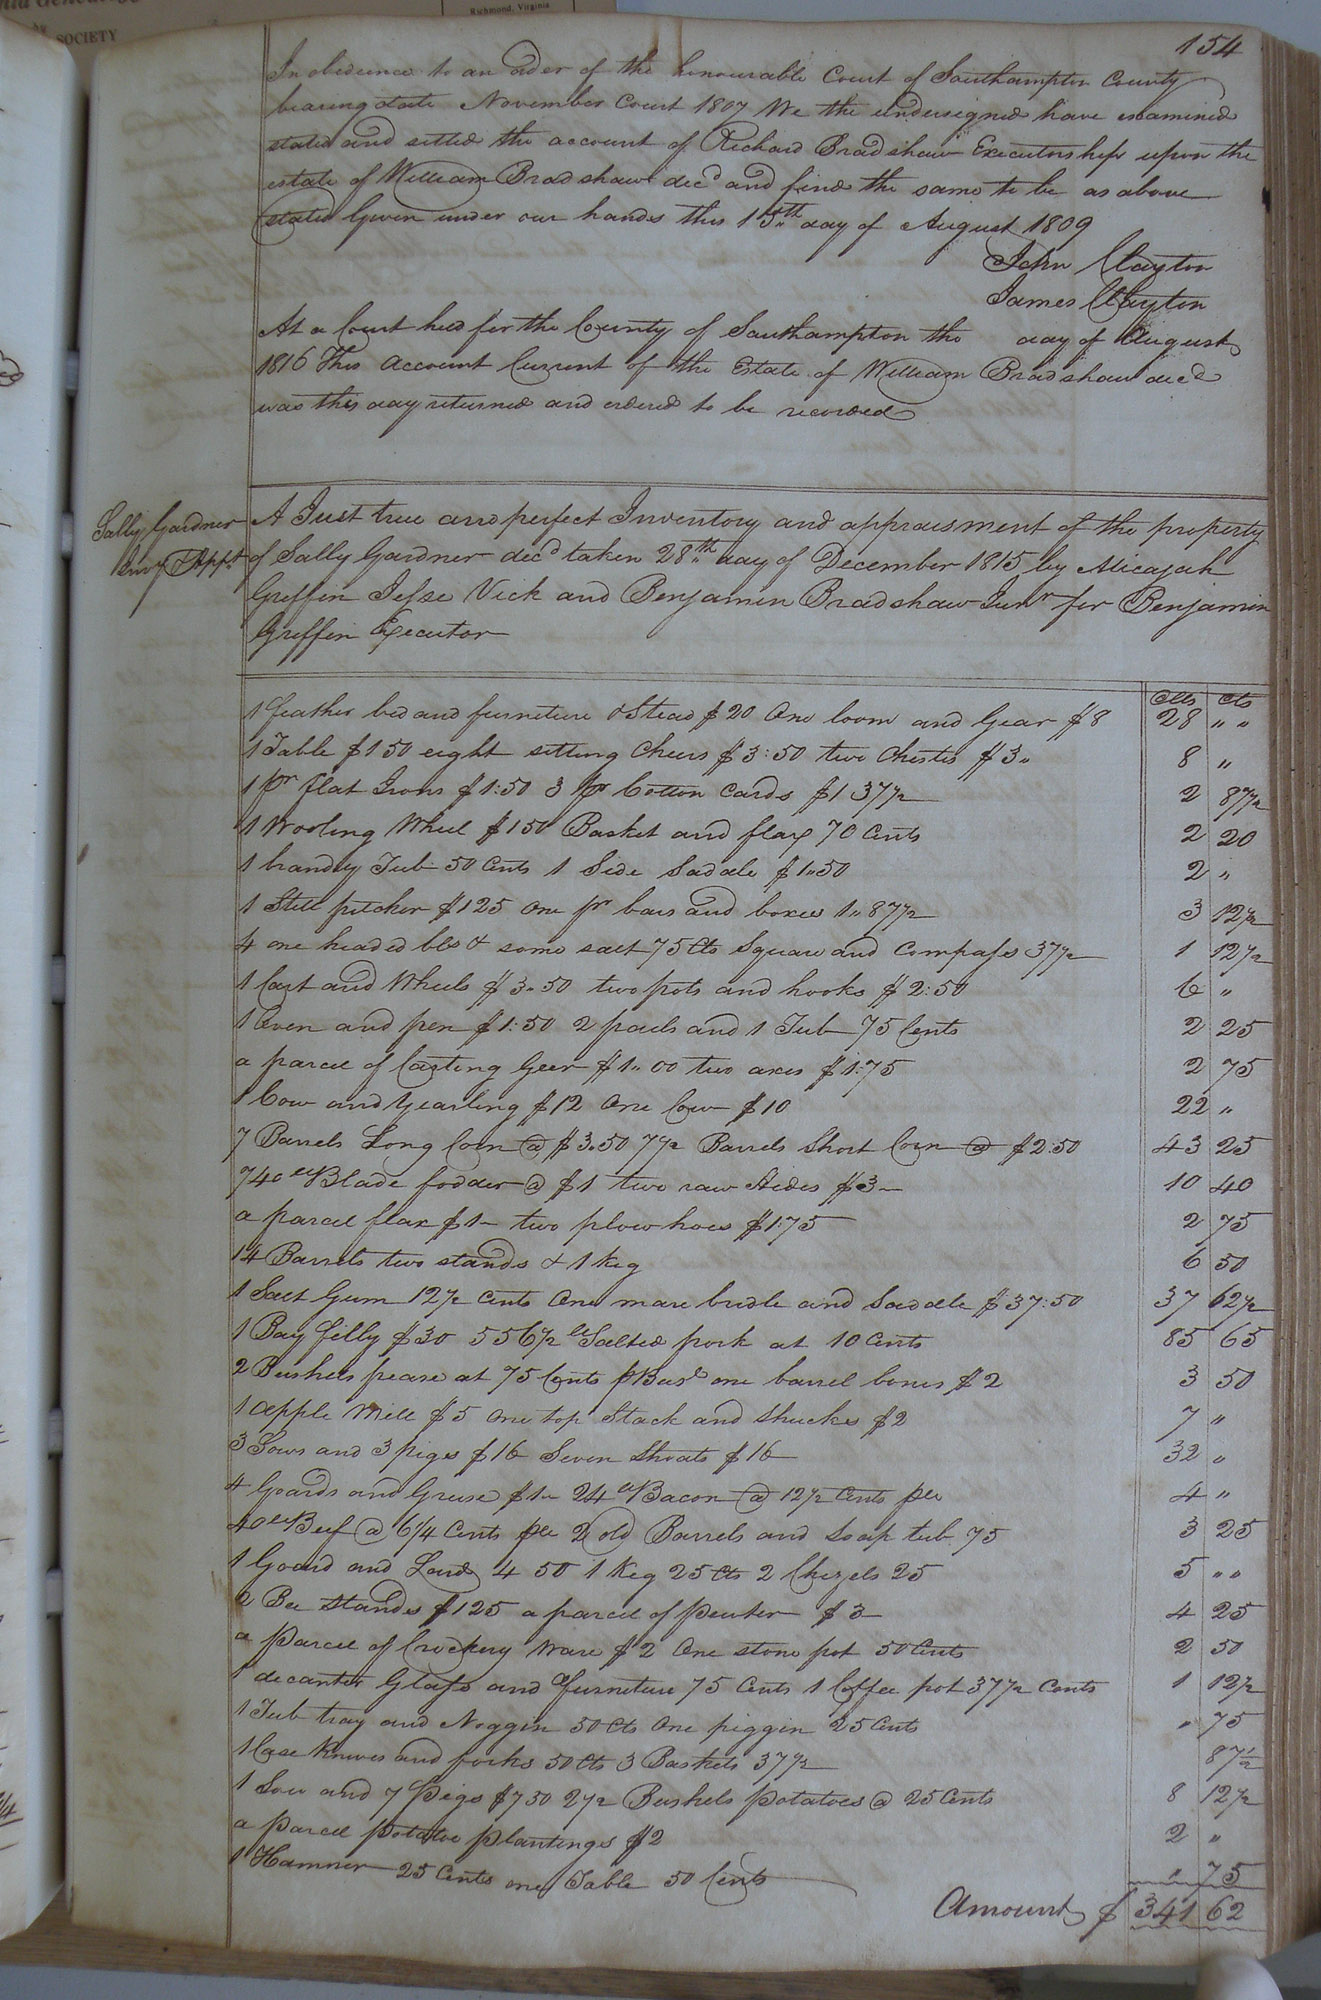 SOCIETY
Richmond, Virginia
154
In obedience to an order of the honourable Court of Southampton County
bearing date November Court 1807 We the undersigned have examined
stated and settled the account of Richard Bradshaw Executorship upon the
estate of William Bradshaw decd and find the same to be as above
stated Given under our hands this 15th day of August 1809
John Clayton
James Clayton
At a Court held for the County of Southampton the day of August
1816 This Account Current of the Estate of William Bradshaw decd
was this day returned and ordered to be recorded
Sally Gardner
Invy & Appt
A Just true and perfect Inventory and appraisment of the property
of Sally Gardner decd taken 28th day of December 1815 by Micajah
Griffin Jesse Vick and Benjamin Bradshaw Junr for Benjamin
Griffin Executor
Dlls cts
1 feather bed and furniture & Stead $20 One loom and Gear $8 28 " "
1 Table $1 50 eight sitting Cheirs $3:50 two Chests $3" 8 "
1 pr flat Irons $1:50 3 pr Cotton Cards $1 37½ 2 87½
1 Wooling Wheel $1 50 Basket and flax 70 Cents 2 20
1 brandy Tub 50 Cents 1 Side Saddle $1"50 2 "
1 Still pitcher $1 25 One pr bars and boxes 1"87½ 3 12½
4 one headed bls & some salt 75 Cts Square and Compass 37½ 1 12½
1 Cart and Wheels $3"50 two pots and hooks $2:50 6 "
1 Oven and pen $1:50 2 pails and 1 Tub 75 Cents 2 25
a parcel of Carting Geer $1"00 two axes $1:75 2 75
1 Cow and Yearling $12 One Cow $10 22 "
7 Barrels Long Corn @ $3.50 7½ Barrels Short Corn @ $2:50 43 25
740 lb Blade fodder @ $1 two raw Hides $3 10 40
a parcel flax $1 two plow hoes $1:75 2 75
14 Barrels two stands & 1 keg 6 50
1 Salt Gum 12½ Cents One mare bridle and Saddle $37:50 37 62½
1 Bay filly $30 556½ lb Salted pork at 10 Cents 85 65
2 Bushels pease at 75 Cents p Busl one barrel bones $2 3 50
1 Apple Mill $5 One top Stack and Shucks $2 7 "
3 Sows and 3 pigs $16 Seven Shoats $16 32 "
4 Goards and Grease $1 24 lb Bacon @ 12½ Cents plb 4 "
40 lb Beef @ 6¼ Cents plb 2 old Barrels and Soap tub 75 3 25
1 Goard and Lard 4 50 1 keg 25 Cts 2 Chizels 25 5 " "
2 Bee Stands $1 25 a parcel of Peuter $3 4 25
a Parcel of Crockery Ware $2 One stone pot 50 Cents 2 50
1 decanter Glass and furniture 75 Cents 1 Coffee pot 37½ Cents 1 12½
1 Tub tray and Noggin 50 Cts One piggin 25 Cents " 75
1 Case knives and forks 50 Cts 3 Baskets 37½ 87½
1 Sow and 7 Pigs $7 50 2½ Bushels potatoes @ 25 Cents 8 12½
a Parcel Potatoe plantings $2 2 "
1 Hammer 25 Cents one Table 50 Cents " 75
Amount $ 341 62